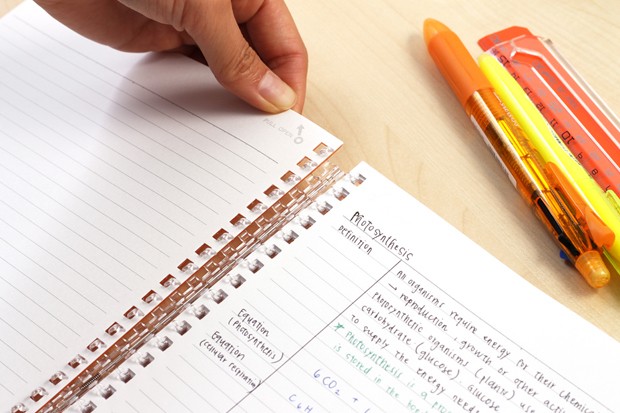 PULL OPEN
PHOTOSYNTHESIS
DEFINITION
All organisms require energy for their chemica
→ reproduction, growth or other acti
Photosynthetic organisms (plants) use
carbohydrate (glucose). Glucose
to supply the energy need
* Photosynthesis is a pro
is stored in the bo
Equation
(Photosynthesis)
6CO2 +
Equation
(Cellular respiration)
C6H